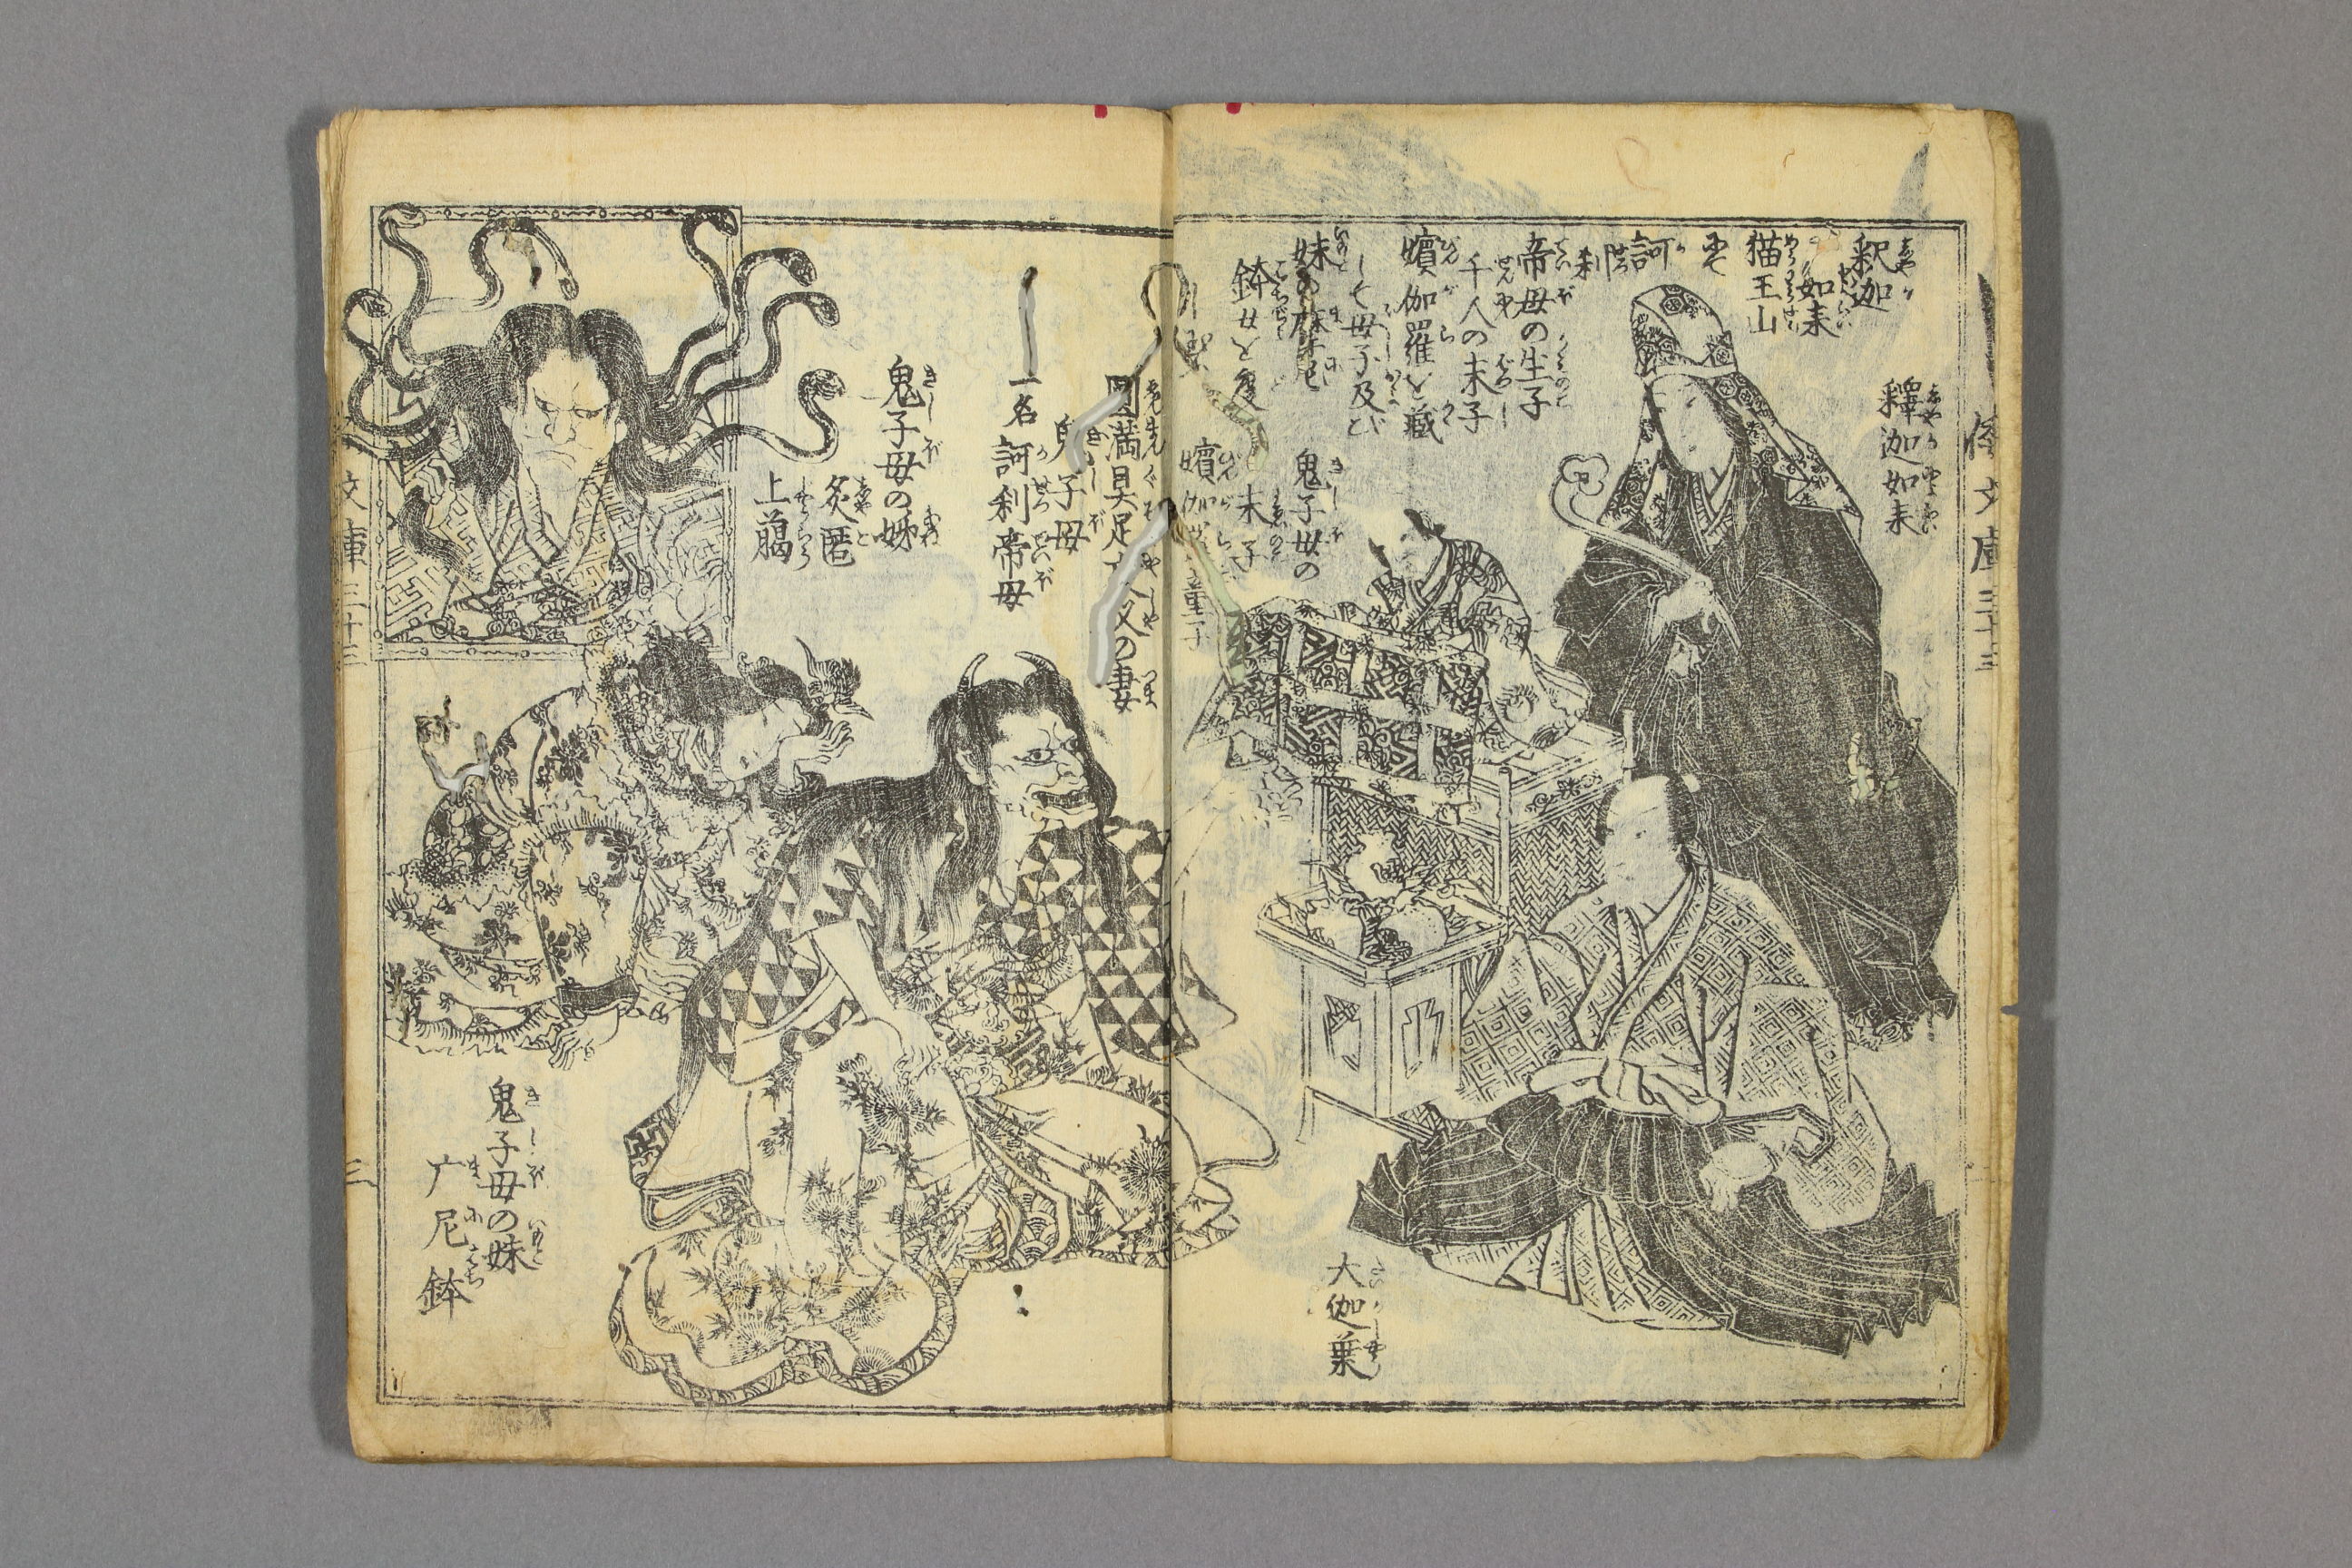 釈迦
如来
猫王山
にて
訶
陀
利
帝母の生子
千人の末子
嬪伽羅を蔵
して母子及び
妹の麻尼
鉢女を度
釋迦如来
鬼子母の
末子
嬪伽羅童子
大伽葉
文庫三十三
圓満具足 叉の妻
鬼子母
一名 訶利帝母
鬼子母の姊
炙匿
上﨟
鬼子母の妹
广尼鉢
文庫三十三
三